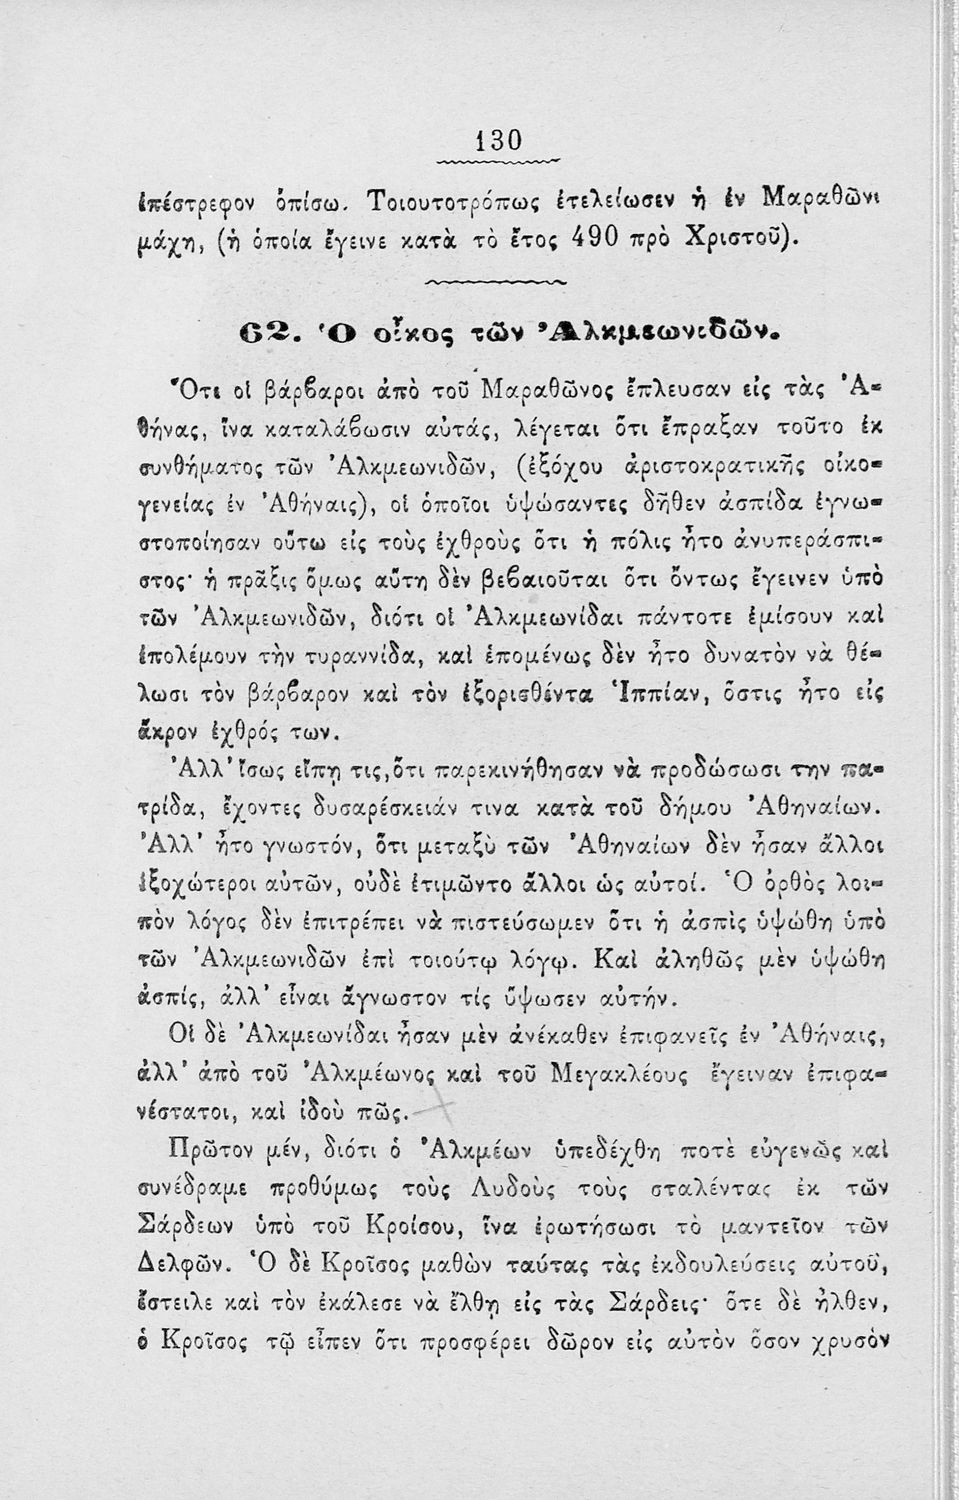 130
ἐπέστρεφον ὀπίσω. Τοιουτοτρόπως ἐτελείωσεν ἡ ἐν Μαραθῶνι
μάχη, (ἡ ὁποία ἔγεινε κατὰ τὸ ἔτος 490 πρὸ Χριστοῦ).
62. Ὁ οἶκος τῶν Ἀλκμεωνιδῶν.
Ὅτι οἱ βάρβαροι ἀπὸ τοῦ Μαραθῶνος ἔπλευσαν εἰς τὰς Ἀ-
θήνας, ἵνα καταλάβωσιν αὐτάς, λέγεται ὅτι ἔπραξαν τοῦτο ἐκ
συνθήματος τῶν Ἀλκμεωνιδῶν, (ἐξόχου ἀριστοκρατικῆς οἰκο-
γενείας ἐν Ἀθήναις), οἱ ὁποῖοι ὑψώσαντες δῆθεν ἀσπίδα ἐγνω-
στοποίησαν οὕτω εἰς τοὺς ἐχθροὺς ὅτι ἡ πόλις ἦτο ἀνυπεράσπι-
στος· ἡ πρᾶξις ὅμως αὕτη δὲν βεβαιοῦται ὅτι ὄντως ἔγεινεν ὑπὸ
τῶν Ἀλκμεωνιδῶν, διότι οἱ Ἀλκμεωνίδαι πάντοτε ἐμίσουν καὶ
ἐπολέμουν τὴν τυραννίδα, καὶ ἑπομένως δὲν ἦτο δυνατὸν νὰ θέ-
λωσι τὸν βάρβαρον καὶ τὸν ἐξορισθέντα Ἱππίαν, ὅστις ἦτο εἰς
ἄκρον ἐχθρός των.
Ἀλλ' ἴσως εἴπῃ τις, ὅτι παρεκινήθησαν νὰ προδώσωσι την πα-
τρίδα, ἔχοντες δυσαρέσκειάν τινα κατὰ τοῦ δήμου Ἀθηναίων.
Ἀλλ' ἦτο γνωστόν, ὅτι μεταξὺ τῶν Ἀθηναίων δὲν ἦσαν ἄλλοι
ἐξοχώτεροι αὐτῶν, οὐδὲ ἐτιμῶντο ἄλλοι ὡς αὐτοί. Ὁ ὀρθὸς λοι-
πὸν λόγος δὲν ἐπιτρέπει νὰ πιστεύσωμεν ὅτι ἡ ἀσπὶς ὑψώθη ὑπὸ
τῶν Ἀλκμεωνιδῶν ἐπὶ τοιούτῳ λόγῳ. Καὶ ἀληθῶς μὲν ὑψώθη
ἀσπίς, ἀλλ' εἶναι ἄγνωστον τίς ὕψωσεν αὐτήν.
Οἱ δὲ Ἀλκμεωνίδαι ἦσαν μὲν ἀνέκαθεν ἐπιφανεῖς ἐν Ἀθήναις,
ἀλλ' ἀπὸ τοῦ Ἀλκμέωνος καὶ τοῦ Μεγακλέους ἔγειναν ἐπιφα-
νέστατοι, καὶ ἰδοὺ πῶς.
Πρῶτον μέν, διότι ὁ Ἀλκμέων ὑπεδέχθη ποτὲ εὐγενῶς καὶ
συνέδραμε προθύμως τοὺς Λυδοὺς τοὺς σταλέντας ἐκ τῶν
Σάρδεων ὑπὸ τοῦ Κροίσου, ἵνα ἐρωτήσωσι τὸ μαντεῖον τῶν
Δελφῶν. Ὁ δὲ Κροῖσος μαθὼν ταύτας τὰς ἐκδουλεύσεις αὐτοῦ,
ἔστειλε καὶ τὸν ἐκάλεσε νὰ ἔλθῃ εἰς τὰς Σάρδεις· ὅτε δὲ ἦλθεν,
ὁ Κροῖσος τῷ εἶπεν ὅτι προσφέρει δῶρον εἰς αὐτὸν ὅσον χρυσὸν